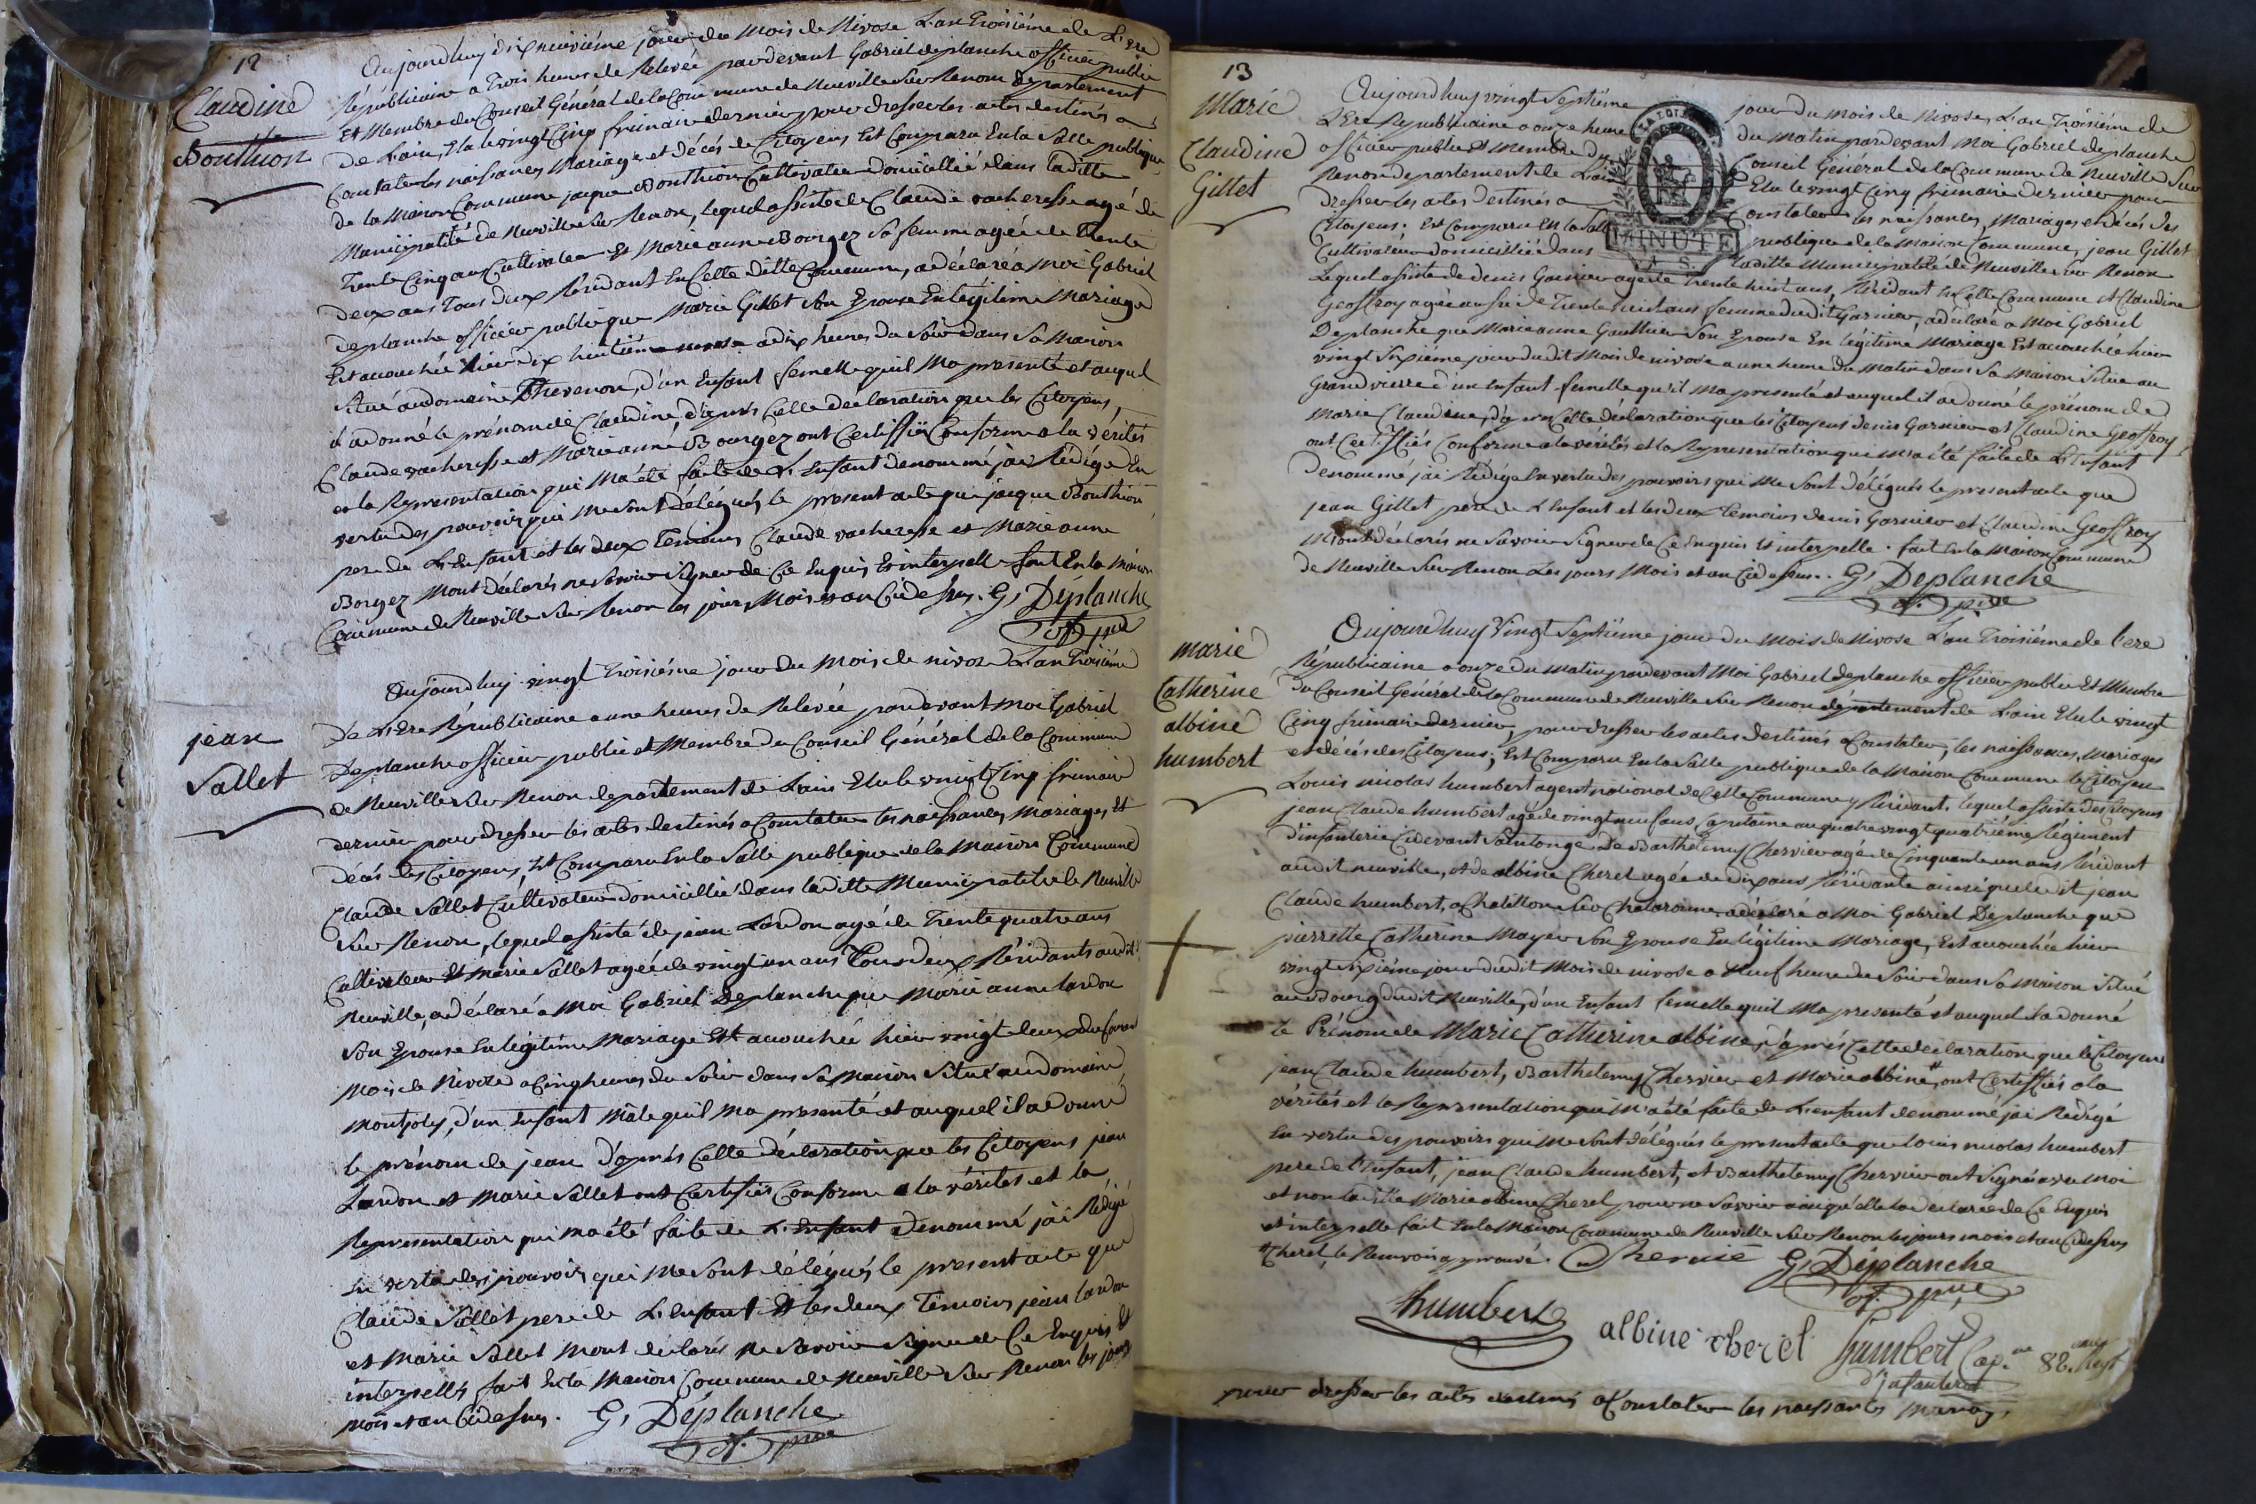 12
Claudine
Bonthion
Aujourdhuy dixneuvième jour du mois de Nivose L'an Troisième de L'ere
Républicaine a Trois heures de Relevée pardevant Gabriel deplanche officier public
Et Membre du Conseil Général de la Commune de Neuville sur Renom département
de Lain, Elu le vingt Cinq frimaire dernier pour dresser les actes destinés a
Constater les naissances Mariage et décés de Citoyens Est Comparu En la Salle publique
de la Maison Commune jaque Bonthion Cultivateur domicillié dans laditte
Municipalité de Neuville sur Renon, lequel assisté de Claude vacheresse agé de
Trente Cinq ans Cultivateur Et Marie anne Bourgez sa femme agée de Trente
deux ans Tous deux Résidant En Cette ditte Commune, a déclaré a Moi Gabriel
deplanche officier public que Marie Gillet son Epouse En legitime Mariage
Est accouchée hier dix huitième a dix heures du Soir dans Sa Maison
situé au domaine Thevenon, d'un Enfant femelle quil Ma presenté et auquel
il a donné le prénom de Claudine d'après Cette declaration que les Citoyens
Claude vacheresse et Marie anne Bourgez ont Certiffié Conforme a la vérités
et la Representation qui Ma été faite de L'Enfant denommé jai Rédigé En
vertu des pouvoirs qui me sont délégués le present acte que jaque Bonthion
pere de L'Enfant et les deux Temoins Claude vacheresse et Marie anne
Borgez Mont déclarés ne savoir signer de Ce Enquis Et interpellé fait En la Maison
Commune de Neuville sur Renon les jours Mois et an Cidessus. G, Déplanche
of. pue
jean
Sallet
Aujourdhuj vingt Troisiéme jour du Mois de nivose L'an Troisième
De L'Ere Républicaine a une heures de Relevée pardevant Moi Gabriel
Deplanche officier public et Membre du Conseil Général de la Commune
de Neuville sur Renon departement de Lain Elu le vingt Cinq frimaire
dernier pour dresser les actes destinés a Constater les naissances, Mariages, Et
décés des Citoyens, Est Comparu En la Salle publique de la Maison Commune
Claude Sallet Cultivateur domicillié dans laditte Municipalité de Neuville
sur Renon, lequel assisté de jean Lardon agé de Trente quatre ans
Cultivateur Et Marie Sallet agée de vingt un ans Tous deux Résidants audit
Neuville, a déclaré a Moi Gabriel Deplanche que Marie anne Lardon
Son Epouse En legitime Mariage Est accouchée hier vingt deux
Mois de Nivose a Cinq heures du Soir dans Sa Maison Situé au domaine
montjoly, d'un Enfant Mâle quil Ma presenté et auquel il a donné
le prénom de jean d'après Cette déclaration que les Citoyens jean
Lardon et Marie Sallet ont Certifiés Conforme a la vérités et la
Representation qui ma été faite de L'Enfant denommé jai Rédigé
En vertu des pouvoirs qui Me Sont délégués le present acte que
Claude Sallet pere de L'Enfant Et les deux Témoins jean Lardon
et Marie Sallet Mont déclarés Ne Savoir Signer de Ce Enquis Et
interpellés fait En la Maison Commune de Neuville sur Renon les jours
mois et an Cidessus. G, Déplanche
of. pue
13
Marie
Claudine
Gillet
MINUTE
Aujourdhuy vingt Septiéme jour du Mois de Nivose, L'an Troisième de
L'Ere Republicaine a onze heure du Matin pardevant Moi Gabriel deplanche
officier public Et Membre du Conseil Général de la Commune de Neuville sur
Renon departement de Lain Elu le vingt Cinq frimaire dernier pour
dresser les actes destinés a Constater les naissances, Mariages et décés des
Citoyens; Est Comparu En la Salle publique de la Maison Commune, jean Gillet
Cultivateur domicillié dans laditte Municipalité de Neuville sur Renon
Lequel assisté de denis Garnier agé de trente huit ans, Résidant En Cette Commune Et Claudine
Geoffroy agée aussi de Trente huit ans femme dudit Garnier, a déclaré a Moi Gabriel
Deplanche que Marie anne Gaulthier Son Epouse En légitime Mariage Est accouchée hier
vingt Sixieme jour dudit Mois de nivose a une heure du Matin dans Sa Maison Située au
Grand vierre d'un Enfant femelle qu'il Ma presenté et auquel il a donné le prénom de
Marie Claudine, d'après Cette déclaration que les Citoyens denis Garnier et Claudine Geoffroy
ont Certiffiés Conforme a la vérités et la Representation qui m'a été faite de L'Enfant
denommé jai Rédigé En vertu des pouvoirs qui Me Sont délégués le present acte que
jean Gillet pere de L'Enfant et les deux Temoins denis Garnier et Claudine Geoffroy
Mont déclarés ne Savoir Signer de Ce Enquis Et interpelle. fait En la Maison Commune
de Neuville sur Renon Les jours Mois et an Cidessus. G, Déplanche
of. pue
marie
Catherine
albine
humbert
Aujourdhuy Vingt Septiéme jour du Mois de Nivose L'an Troisiéme de l'ere
Républicaine a onze du matin pardevant Moi Gabriel deplanche officier public Et Membre
du Conseil Général de la Commune de Neuville sur Renon département de Lain Elu le vingt
Cinq frimaire dernier, pour dresser les actes destinés a Constater, les naissances, Mariages
et décés des Citoyens; Est Comparu En la Salle publique de la Maison Commune le Citoyen
Louis nicolas humbert agent national de Cette Commune y Résidant, lequel assisté des Citoyens
jean Claude humbert agé de vingt neuf ans, Capitaine au quatre vingt quatrième Régiment
d'infanterie Cidevant Saintonge, de Barthelemy Chervier agé de Cinquante un ans Résidant
audit neuville, et de albine Cherel agée de dix ans Résidante ainsi que le dit jean
Claude humbert, a Chatillon sur Chalaronne, a déclaré a Moi Gabriel Déplanche que
pierrette Catherine Mayer Son Epouse En légitime Mariage, Est accouchée hier
vingt Sixiéme jour dudit Mois de nivose a Neuf heure du Soir dans Sa Maison Situé
au Bourg dudit Neuville, d'un Enfant femelle quil Ma presenté et auquel il a donné
le Prénom de Marie Catherine albine, d'après Cette déclaration que le Citoyens
jean Claude humbert, Barthelemy Chervier et Marie albine # ont Certiffiés a la
vérités et la Representation qui m'a été faite de L'enfant denommé jai Redigé
En vertu des pouvoirs qui me Sont délégués le present acte que Louis nicolas humbert
pere de l'Enfant, jean Claude humbert, et Barthelemy Chervier ont Signé avec moi
et non laditte Marie albine Cherel pour ne Savoir ainsi qu'elle la déclaré de Ce Enquis
et interpellé fait En la Maison Commune de Neuville sur Renon les jours mois et an Cidessus
# Cherel, le Renvoi approuvé. Chervié G, Déplanche
of. pue
humbert
albine cherel
humbert Cap.ne 82.eme Regt
d'jnfanterie
pour dresser les actes destinés a Constater les naissances mariag,